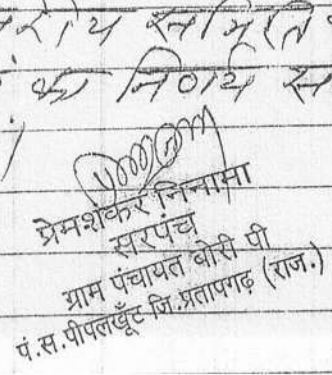 का निर्णय
प्रेमशंकर निनामा
सरपंच
ग्राम पंचायत बोरी पी
पं.स.पीपलखूँट जि.प्रतापगढ़ (राज.)